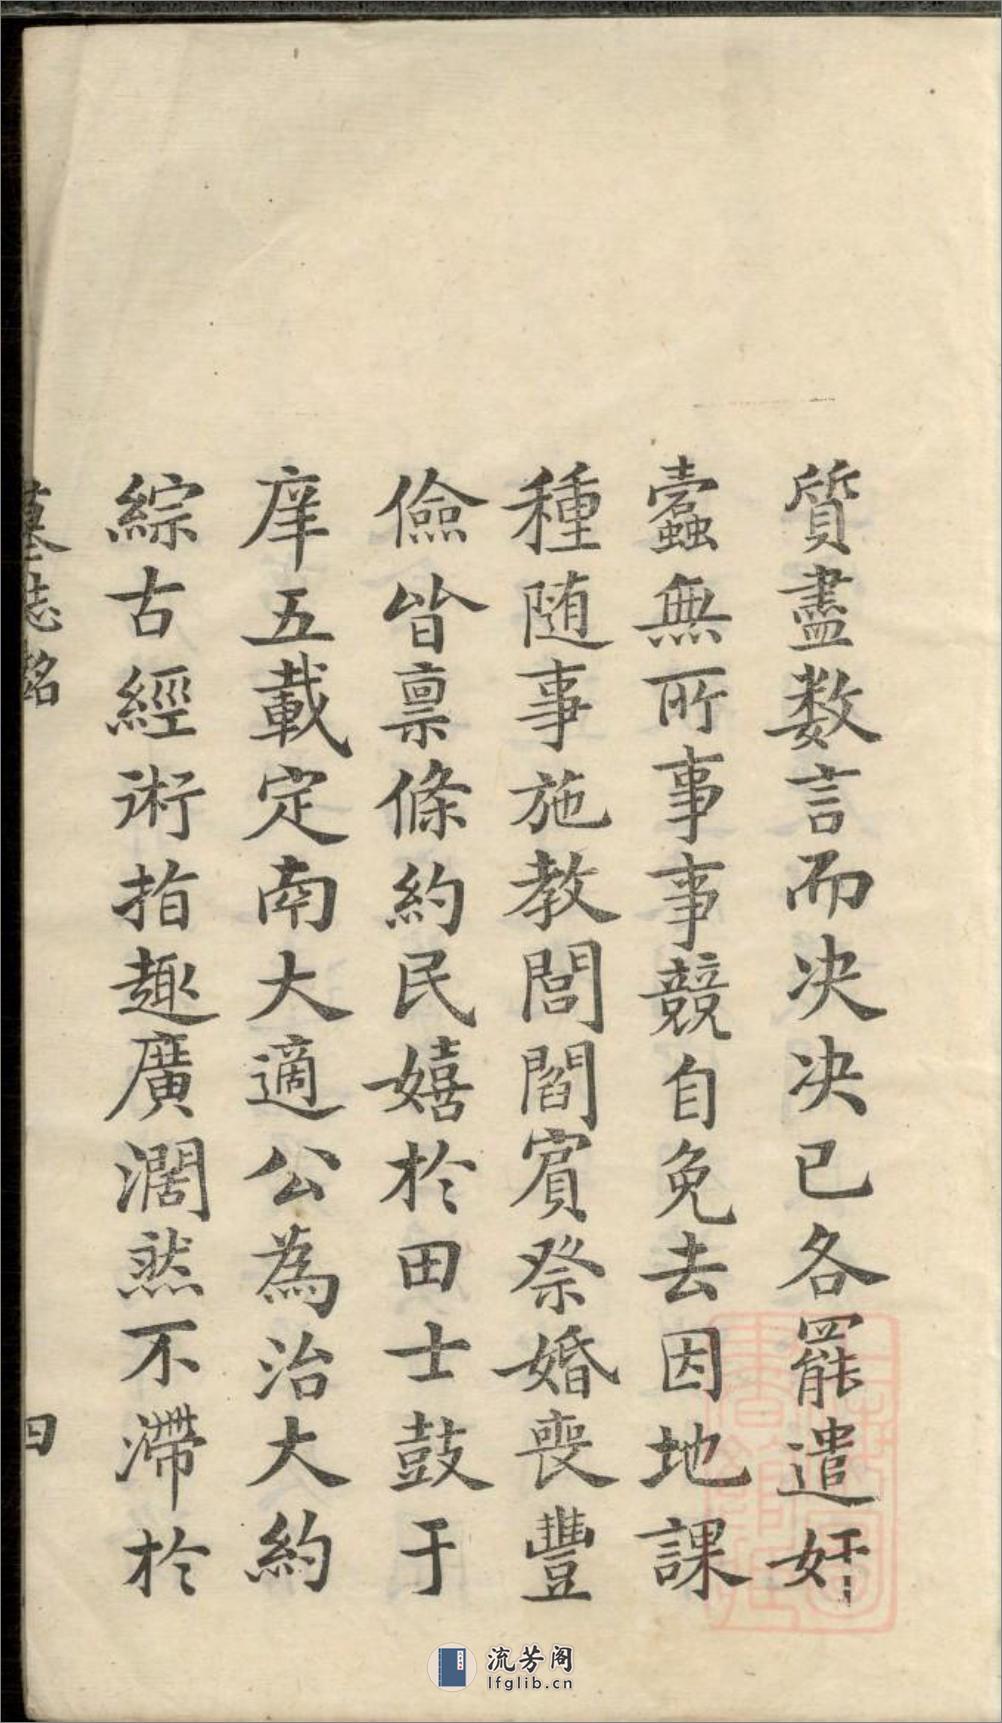 質盡数言而决决已各罷遣奸
蠧無所事事競自免去因地課
種随事施教閭閻賔祭婚喪豐
儉皆禀條約民嬉於田士鼓于
庠五載定南大適公為治大約
綜古經術指趣廣濶然不滯於
墓誌銘
四
流芳阁
lfglib.cn